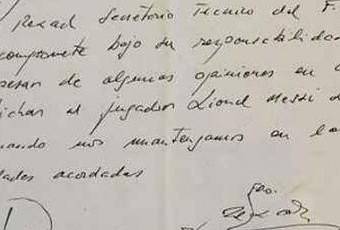 Rexach Secretario Tecnico del F.
compromete bajo su responsabilidad
pesar de algunas opiniones en
fichar al jugador Lionel Messi
cuando nos mantengamos en la
dades acordadas